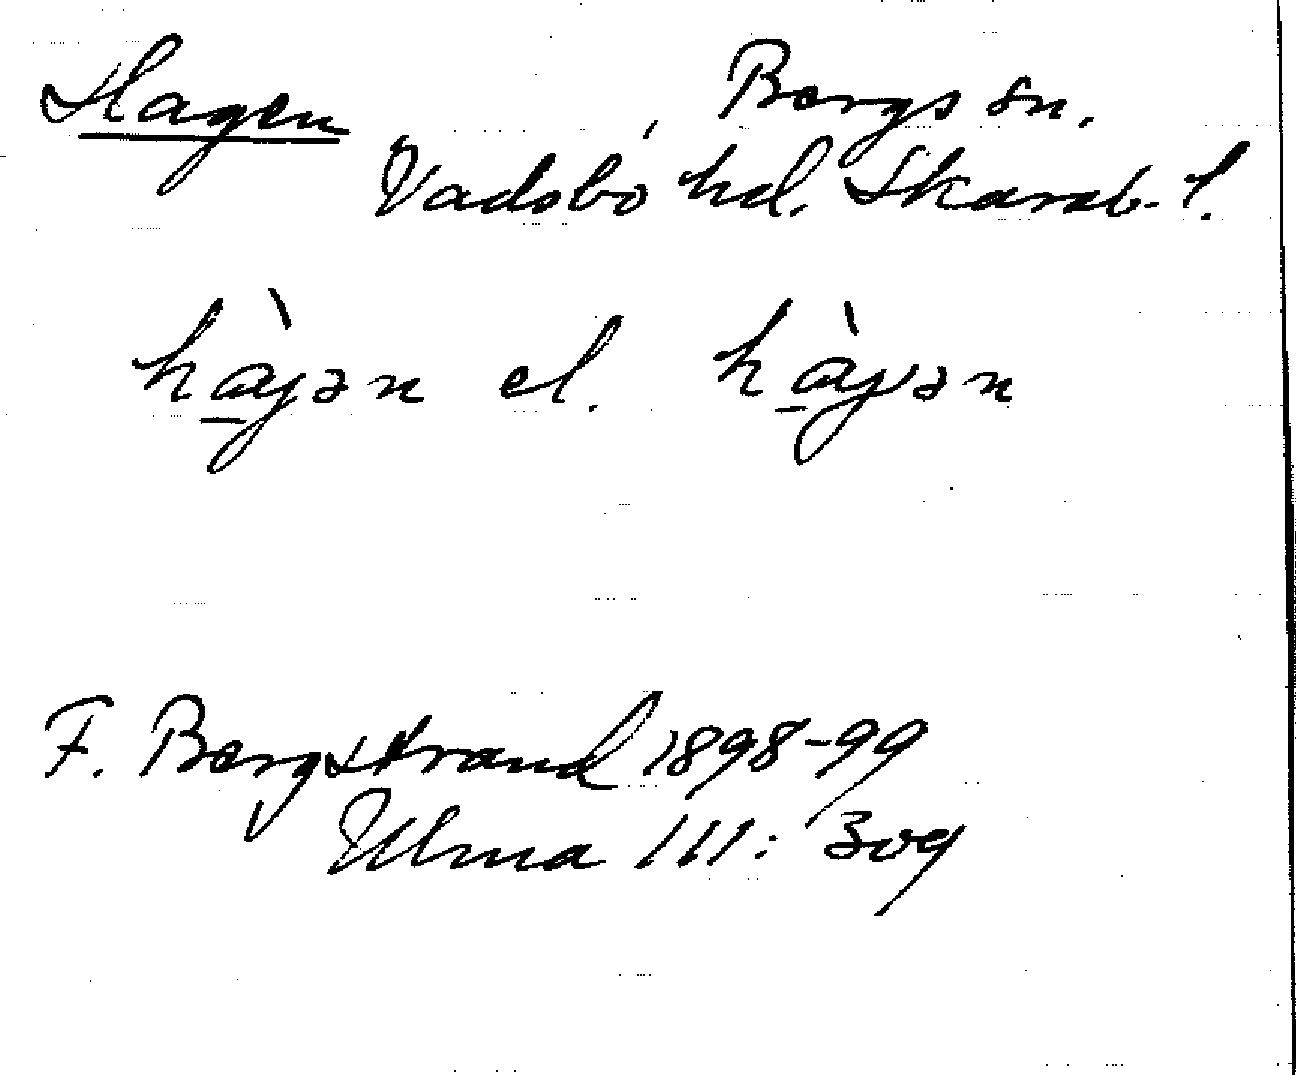 Hagen, Bergs sn.
Vadsbo hd. Skarab. l.
hà̱γən el. hà̱γən
F. Bergstrand 1898-99
Ulma 111: 309